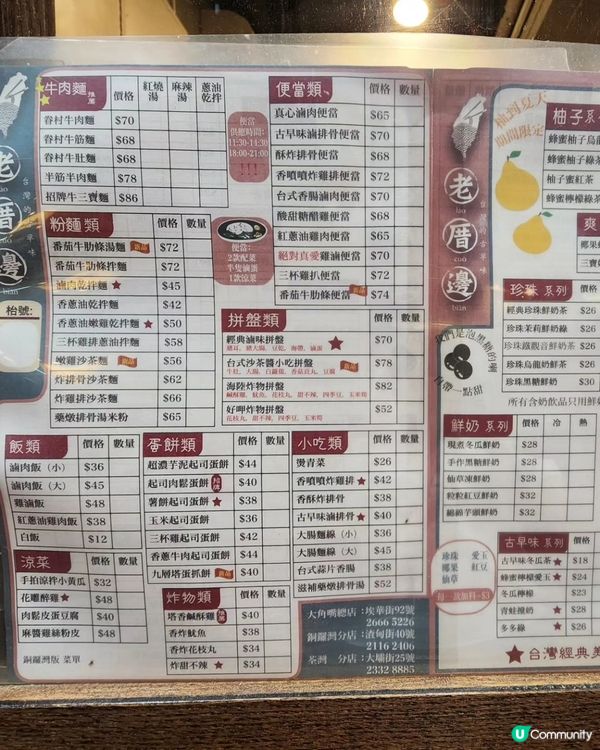 牛肉麵 推薦 價格 紅燒湯 麻辣湯 蔥油乾拌
眷村牛肉麵 $70
眷村牛筋麵 $68
眷村牛肚麵 $68
半筋半肉麵 $78
招牌牛三寶麵 $86
便當
供應時間:
11:30-14:30
18:00-21:00
!!!
便當類 價格 數量
真心滷肉便當 $65
古早味滷排骨便當 $70
酥炸排骨便當 $68
香噴噴炸雞排便當 $70
台式香腸滷肉便當 $70
酸甜糖醋雞便當 $68
紅蔥油雞肉便當 $70
絕對真愛雞滷便當 $70
三杯雞扒便當 $72
番茄牛肋條便當 $74
便當:
2款配菜
半隻滷蛋
1款涼菜
粉麵類 價格 數量
番茄牛肋條湯麵 $72
番茄牛肋條拌麵 $72
滷肉乾拌麵 $45
香蔥油乾拌麵 $42
香蔥油嫩雞乾拌麵 $50
三杯雞排蔥油拌麵 $58
嫩雞沙茶麵 $56
炸排骨沙茶麵 $62
炸雞排沙茶麵 $66
藥燉排骨湯米粉 $65
拼盤類 價格 數量
經典滷味拼盤 $70
台式沙茶醬小吃拼盤 $78
海陸炸物拼盤 $82
鹹酥雞、魷魚、花枝丸、甜不辣、四季豆、玉米筍
好呷炸物拼盤 $52
花枝丸、甜不辣、四季豆、玉米筍
飯類 價格 數量
滷肉飯(小) $36
滷肉飯(大) $45
雞滷飯 $48
紅蔥油雞肉飯 $38
白飯 $12
涼菜 價格 數量
手拍涼拌小黃瓜 $32
花雕醉雞 $48
肉鬆皮蛋豆腐 $40
麻醬雞絲粉皮 $48
銅鑼灣版 菜單
蛋餅類 價格 數量
超濃芋泥起司蛋餅 $44
起司肉鬆蛋餅 $40
薯餅起司蛋餅 $38
玉米起司蛋餅 $36
三杯雞起司蛋餅 $42
香蔥牛肉起司蛋餅 $44
九層塔蛋抓餅 $40
炸物類 價格 數量
塔香鹹酥雞 $40
香炸魷魚 $38
香炸花枝丸 $34
炸甜不辣 $34
小吃類 價格 數量
燙青菜 $26
香噴噴炸雞排 $42
香酥炸排骨 $38
古早味滷排骨 $40
大腸麵線(小) $38
大腸麵線(大) $45
台式蒜片香腸 $38
滋補藥燉排骨 $52
大角嘴總店:埃華街92號
2666 5226
銅鑼灣分店:渣甸街40號
2116 2406
荃灣 分店:大壩街25號
2332 8885
老 lǎo
厝 cuò
邊 biān
台灣的古早味
枱號:
柚到夏天
期間限定
柚子系
蜂蜜柚子烏龍
蜂蜜柚子綠茶
柚子蜜紅茶
蜂蜜檸檬綠茶
爽
椰果
三寶
我們是泡黑糖的喇
台帶一點甜
珍珠 系列 價格
經典珍珠鮮奶茶 $26
珍珠茉莉鮮奶綠 $26
珍珠鐵觀音鮮奶茶 $26
珍珠烏龍鮮奶茶 $26
珍珠黑糖鮮奶 $30
所有含奶飲品只用鮮
鮮奶 系列 價格 冷 熱
現煮冬瓜鮮奶 $28
手作黑糖鮮奶 $28
仙草凍鮮奶 $28
粒粒紅豆鮮奶 $32
綿綿芋頭鮮奶 $32
珍珠 愛玉
椰果 紅豆
仙草
每一款加料+$3
古早味 系列 價格
古早味冬瓜茶 $18
蜂蜜檸檬愛玉 $24
冬瓜檸檬 $23
青蛙撞奶 $28
多多綠 $26
台灣經典美
U Community